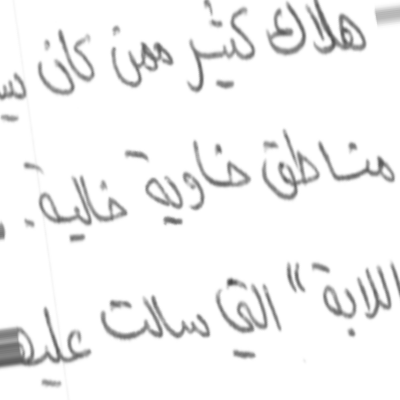 هلاك كثير ممن كان
مناطق خاوية خالية .
اللابة " التي سالت